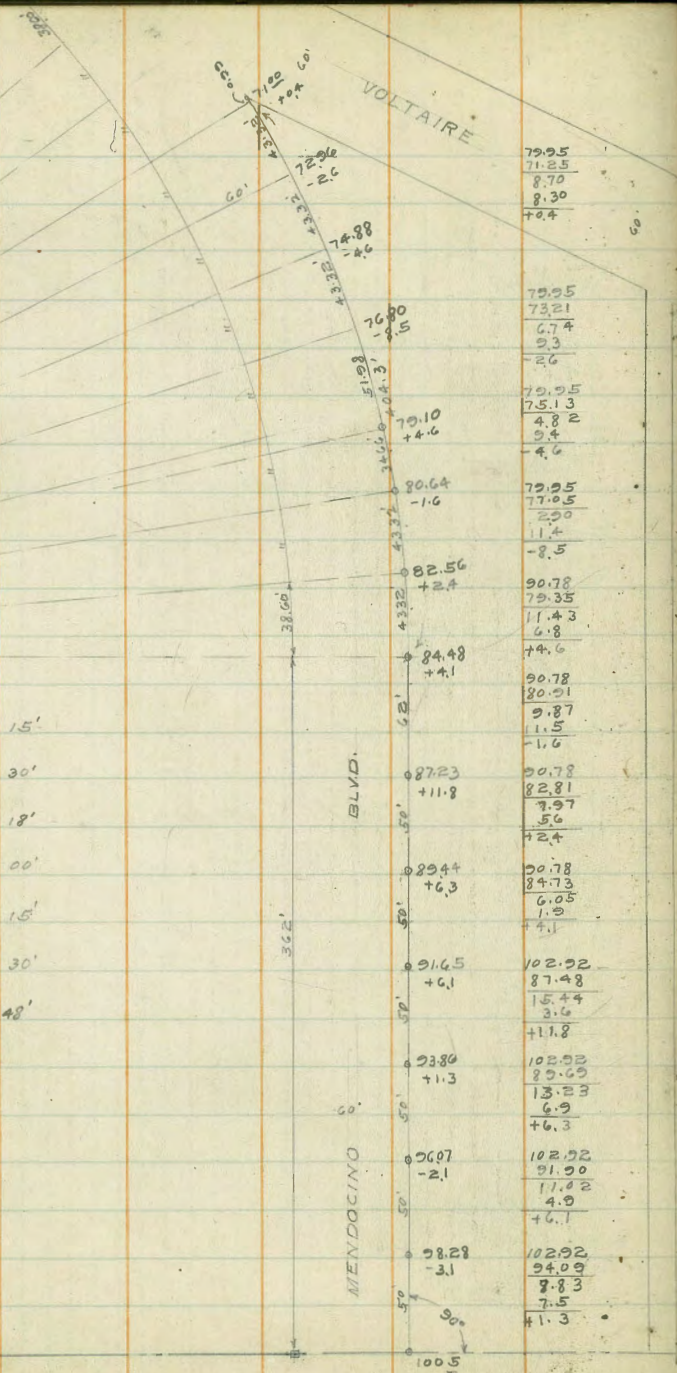 38.00'
"
0.99
71.00
+0.4
60'
VOLTAIRE
43.32'
72.96
-2.6
60'
43.32
74.88
-4.6
43.32'
76.80
-8.5
51.98
404.3'
79.10
+4.6
34.66
80.64
-1.6
43.32
82.56
+2.4
43.32
84.48
+4.1
62'
87.23
+11.8
50'
89.44
+6.3
50'
91.65
+6.1
50'
93.86
+1.3
50'
96.07
-2.1
50'
98.28
-3.1
50'
90°
100.5
"
"
"
"
"
"
38.60'
362'
BLVD.
60'
MENDOCINO
15'
30'
18'
00'
15'
30'
48'
60'
79.95
71.25
8.70
8.30
+0.4
79.95
73.21
6.74
9.3
-2.6
79.95
75.13
4.82
9.4
-4.6
79.95
77.05
2.90
11.4
-8.5
90.78
79.35
11.43
6.8
+4.6
90.78
80.91
9.87
11.5
-1.6
90.78
82.81
7.97
5.6
+2.4
90.78
84.73
6.05
1.9
+4.1
102.92
87.48
15.44
3.6
+11.8
102.92
89.69
13.23
6.9
+6.3
102.92
91.90
11.02
4.9
+6.1
102.92
94.09
8.83
7.5
+1.3